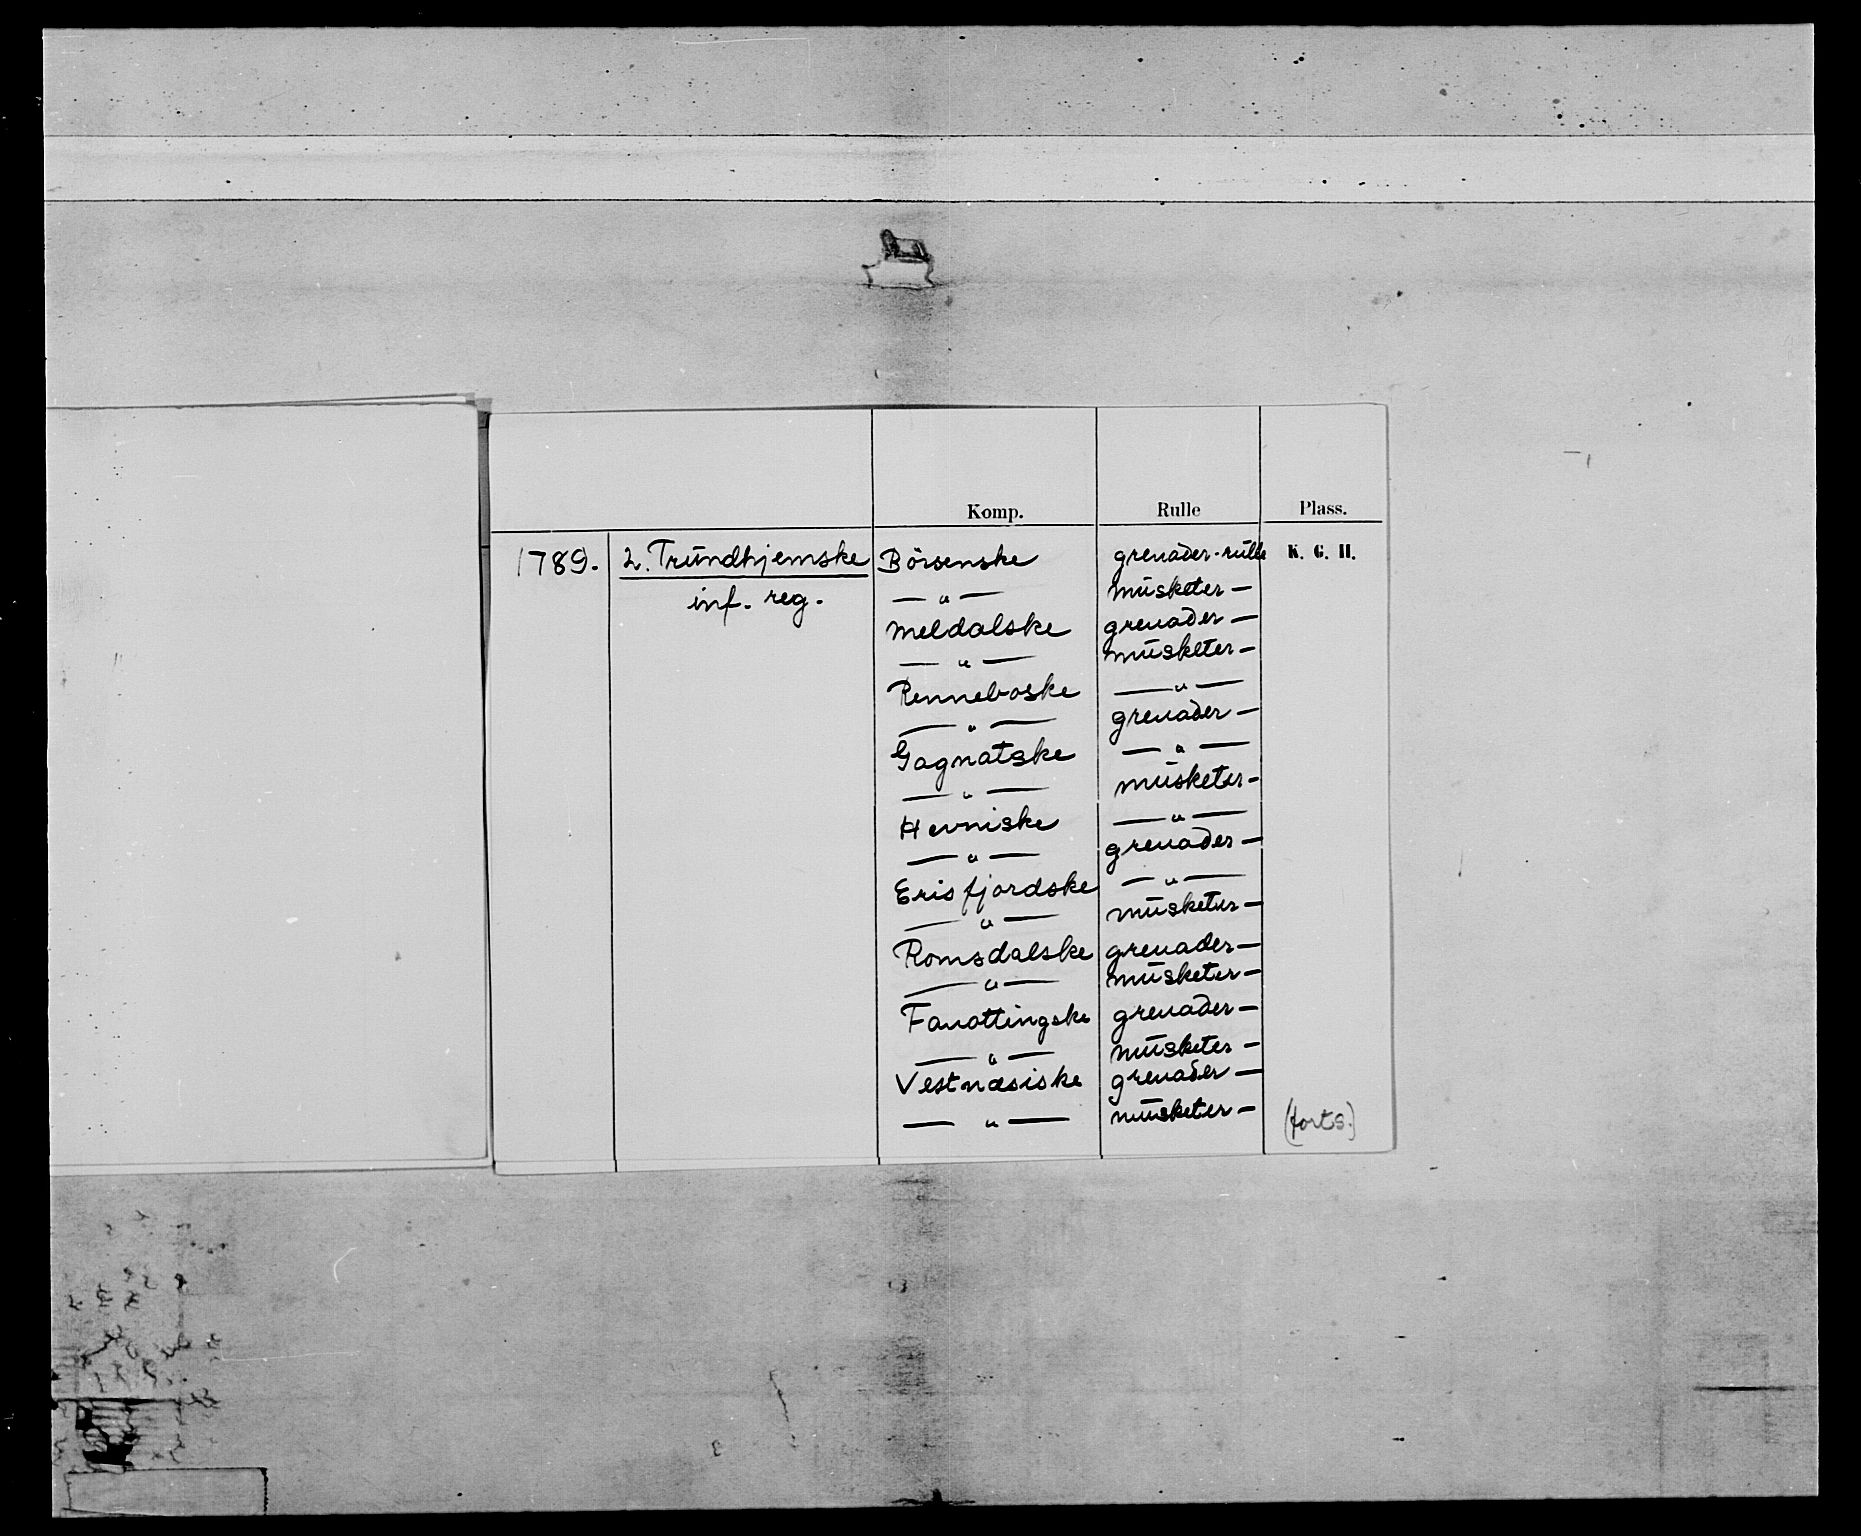 Komp. Rulle Plass.
1789. 2. Trundhjemske Börsenske grenader-rulle K. G. H.
inf. reg. — " — musketer —
Meldalske grenader —
— " — musketer —
Renneboske — " —
— " — grenader —
Gagnatske — " —
— " — musketer —
Hevniske — " —
— " — grenader —
Erisfjordske — " —
— " — musketer —
Romsdalske grenader —
— " — musketer —
Fanottingske grenader —
— " — musketer —
Vestnæsiske grenader —
— " — musketer — (forts.)